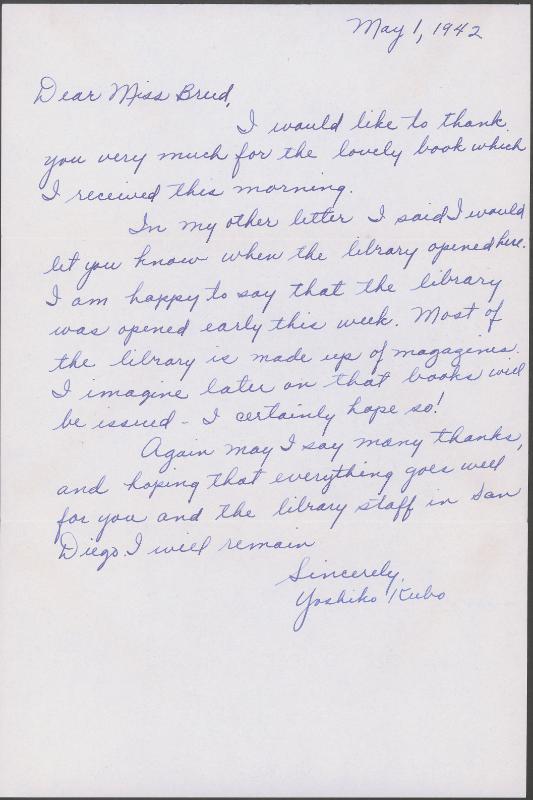 May 1, 1942
Dear Miss Breed,
I would like to thank
you very much for the lovely book which
I received this morning.
In my other letter I said I would
let you know when the library opened here.
I am happy to say that the library
was opened early this week. Most of
the library is made up of magazines.
I imagine later on that books will
be issued - I certainly hope so!
Again may I say many thanks,
and hoping that everything goes well
for you and the library staff in San
Diego I will remain
Sincerely,
Yoshiko Kubo